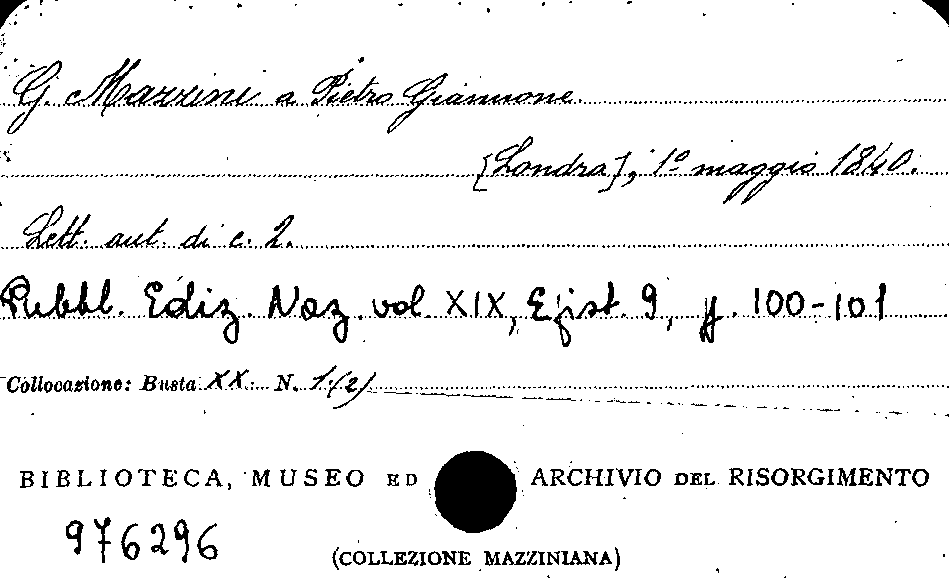 G. Mazzini a Pietro Giannone.
[Londra], 1º maggio 1840.
Lett. aut. di c. 2.
Pubbl. Ediz. Naz. vol. XIX, Epist. 9, pp. 100-101
Collocazione: Busta XX. N. 1(2)
BIBLIOTECA, MUSEO ED ARCHIVIO DEL RISORGIMENTO
976296
(COLLEZIONE MAZZINIANA)